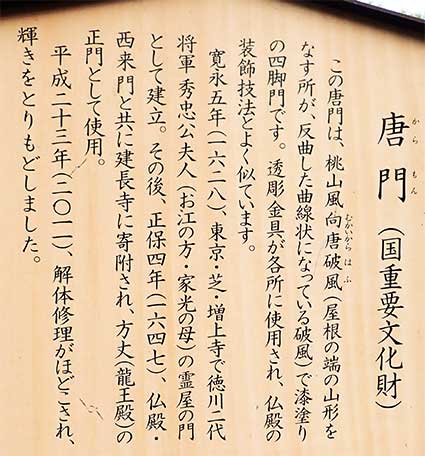 唐門（国重要文化財）
からもん
この唐門は、桃山風向唐破風（屋根の端の山形を
むかいからはふ
なす所が、反曲した曲線状になっている破風）で漆塗り
の四脚門です。透彫金具が各所に使用され、仏殿の
装飾技法とよく似ています。
寛永五年（一六二八）、東京・芝・増上寺で徳川二代
将軍秀忠公夫人（お江の方・家光の母）の霊屋の門
として建立。その後、正保四年（一六四七）、仏殿・
西来門と共に建長寺に寄附され、方丈（龍王殿）の
正門として使用。
平成二十三年（二〇一一）、解体修理がほどこされ、
輝きをとりもどしました。